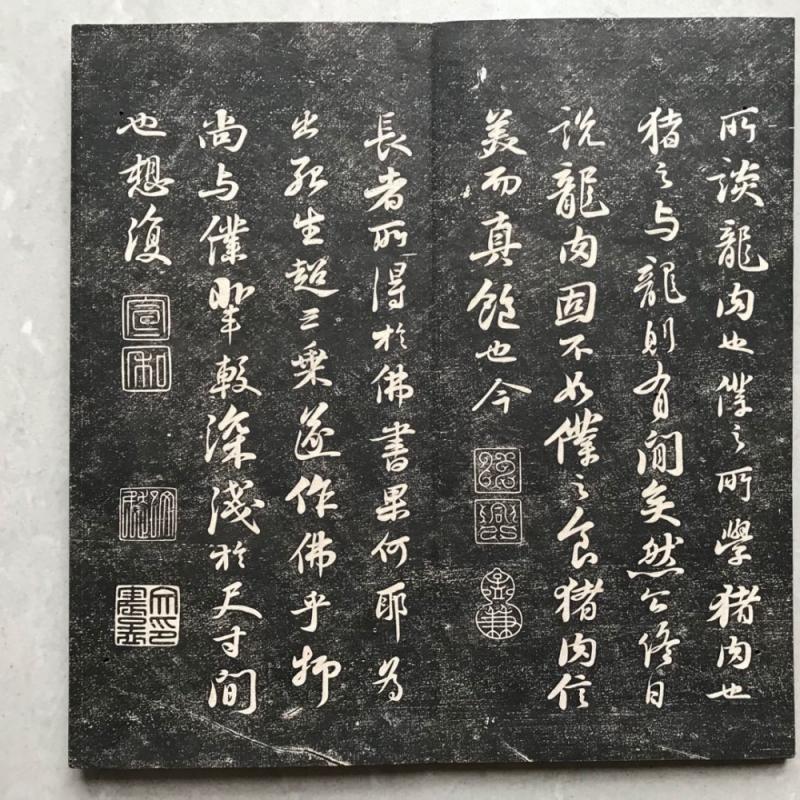 所談龍肉也僕之所學猪肉也
猪之与龍則有間矣然公終日
說龍肉固不如僕之食猪肉信
美而真飽也今
長者所得於佛書果何耶為
出死生超三乘遂作佛乎抑
尚与僕輩較深淺於尺寸間
也想復
宣和